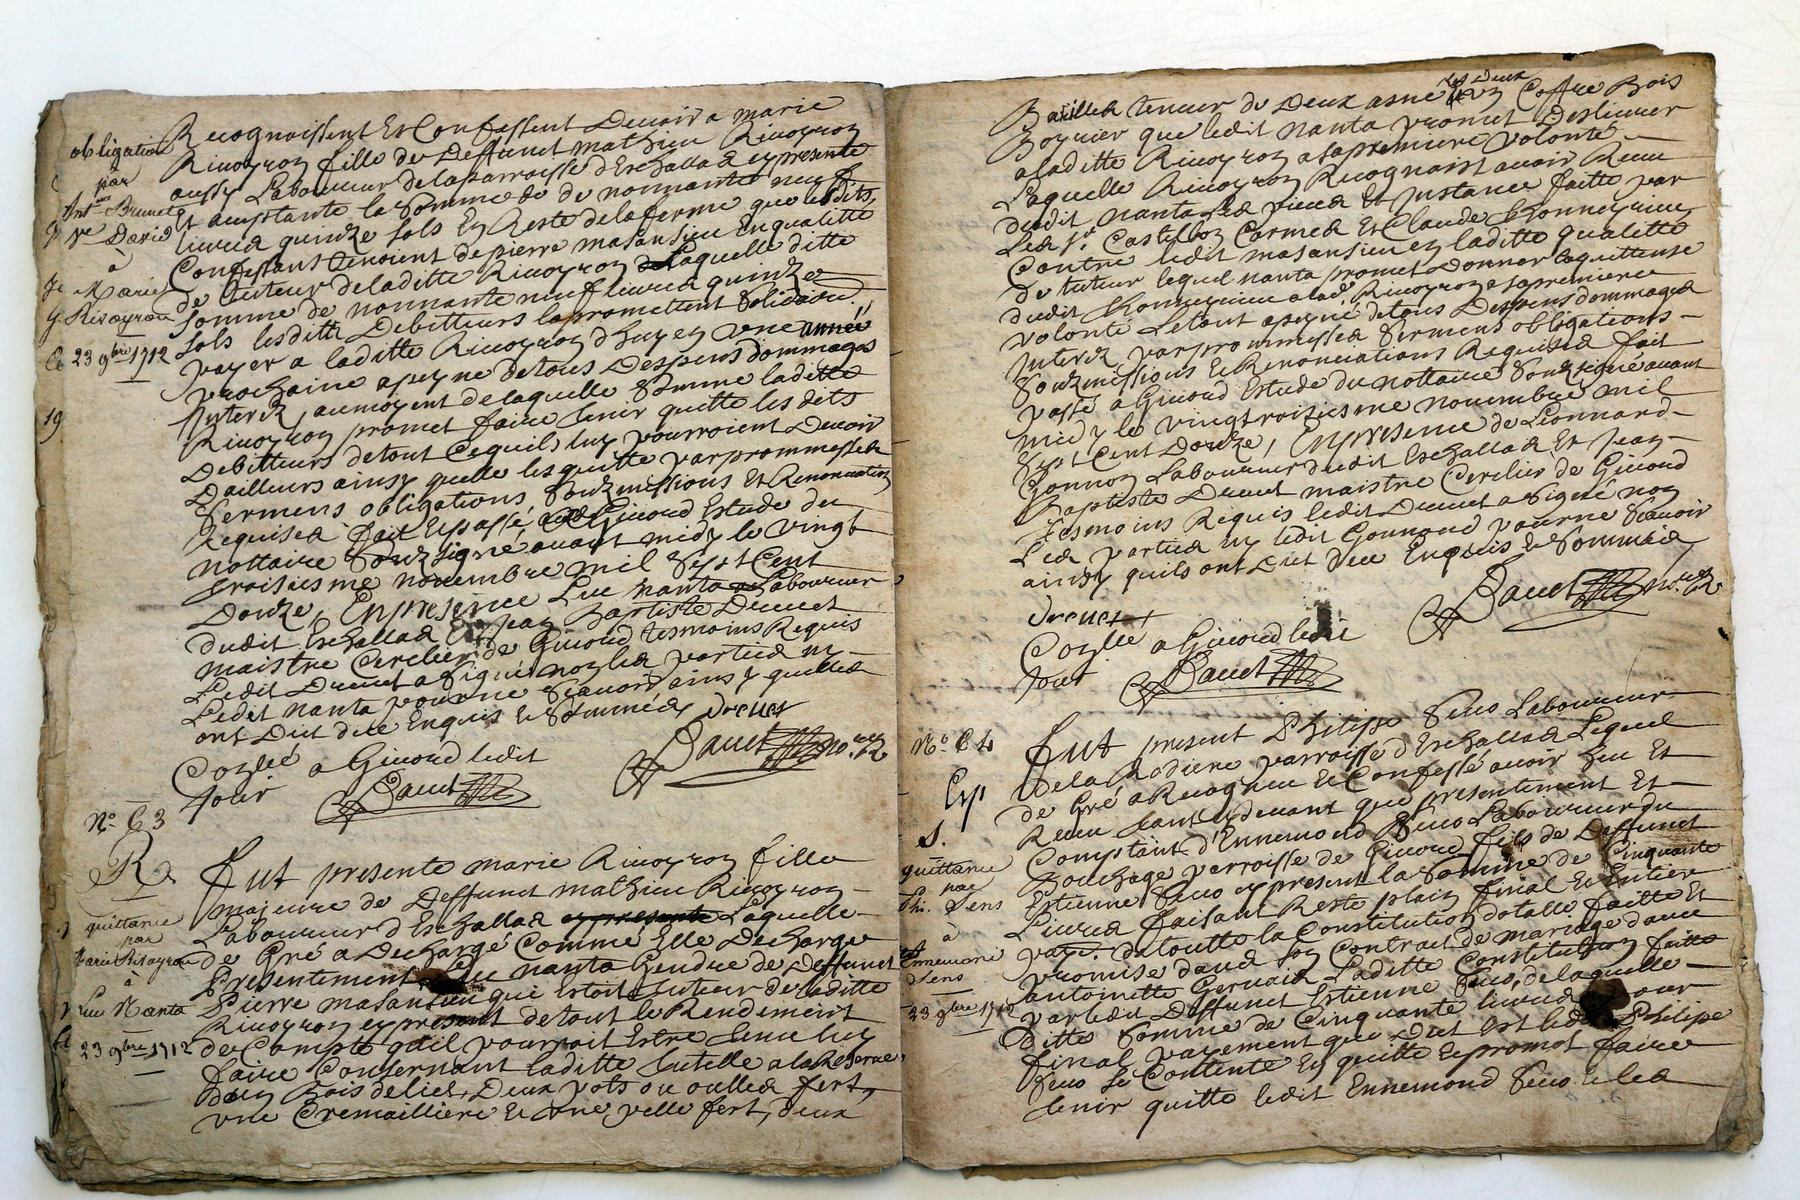 obligation
par
Ant.^ne Brunet
& p^re David
à
Marie
Rivoyron
23 9^bre 1712
Recognoissent Et Confessent Devoir a marie
Rivoyron fille de Deffunct mathieu Rivoyron
aussy Laboureur de la parroisse d'Eschallas ey presente
Et acceptante la Somme de de nonnante neuf
livres quinze sols En Reste de la ferme que lesdits
Confessant tenoient de pierre masansieu En qualitte
de tuteur de laditte Rivoyron Laquelle ditte
Somme de nonnante neuf livres quinze
sols lesditts Debitteurs la promettent Solidaire.
payer a laditte Rivoyron d'huy en une année
prochaine a peyne de tous Despens dommages
Interez, au moyent de laquelle Somme laditte
Rivoyron promet faire tenir quitte les dets
Debitteurs de tout Ce quils luy pourroient Devoir
Dailleurs ainsy quelle les quitte par prommesses
Sermens obligations, Soubzmissions Et Renonciations
Requises fait Et passé, a Givord Estude du
nottaire Soubzsigné avant midy le vingt
troisiesme novembre mil Sept Cent
Douze, En presence Luc nanta Laboureur
dudit Eschallas Et Jean Baptiste Drevet
maistre Cerclier de Givord tesmoins Requis
Ledit Drevet a Signé non les parties ny
Ledit nanta pour ne Scavoir, ainsy quilles
ont Dit de ce Enquis Et Sommées Drevet
Conllé a Givord ledit
Jour
N.º 63
R
quittance
par
Marie Rivoyron
à
Luc Nanta
23 9^bre 1712
Fut presente marie Rivoyron fille
majeure de Deffunct mathieu Rivoyron
Laboureur d'Eschallas Laquelle
de Gré a Dechargé Comme Elle Decharge
Presentement Luc nanta Gendre de Deffunct
Pierre masansieu qui Estoit tuteur de laditte
Rivoyron ey present de tout le Rendement
de Compte quil pourroit Estre tenu luy
faire Consernant laditte tutelle a la Reserve
d'un Bois de lict, Deux pots ou oulles fert,
une Cremailliere Et une pelle fert, deux
Barilles teneur de Deux asnées les deux un Coffre Bois
Noyrier que ledit nanta promet Deslivrer
a laditte Rivoyron a sa premiere volonté
Laquelle Rivoyron Recognoist avoir Reçeu
dudit nanta les pieces Et Instance faitte par
Les s.^r Castellon Carmes Et Claude
Contre ledit masansieu en laditte qualitte
de tuteur lequel nanta promet Donner la quittense
dudit a lad.^e Rivoyron a sa premiere
volonte Le tout a peyne de tous Despens dommages
Interez par prommesses Sermens obligations
Soubzmissions Et Renonciations Requises fait
passé a Givord Estude du nottaire Soubzsigné avant
midy le vingt roisiesme novembre mil
Sept Cent Douze, En presence de Leonnard
Gonnon Laboureur dudit Eschallas Et Jean
Baptiste Drevet maistre Cerclier de Givord
Tesmoins Requis ledit Drevet a Signé non
Les parties ny ledit Gonnond pour ne Scavoir
ainsy quils ont Dit de ce Enquis & Sommées
Drevet
Conllé a Givord ledit
Jour
N.º 64
Exp
S.
quittance
par
Phi. Sens
à
Ennemond
Sens
23 9^bre 1712
Fut present Philippe Sens Laboureur
de la Rodiere parroisse d'Eschallas Lequel
de Gré a Recogneu Et Confessé avoir heu Et
Receu tant Cydevant que presentement Et
Comptant d'Ennemond Sens Laboureur du
Bouchage parroisse de Givord fils de Deffunct
Estienne Sens ey present la Somme de Cinquante
Livres faisant Reste plain final Et Entier
paye. de toutte la Constitution dotalle faitte Et
promise dans son Contract de mariage avec
antoinette Gervais Laditte Constitution faitte
par ledit Deffunct Estienne Sens, de laquelle
ditte Somme de Cinquante livres pour
final payement que Dict Est led. Philipe
Sens Se Contente En quitte Et promet faire
tenir quitte ledit Ennemond Sens & les